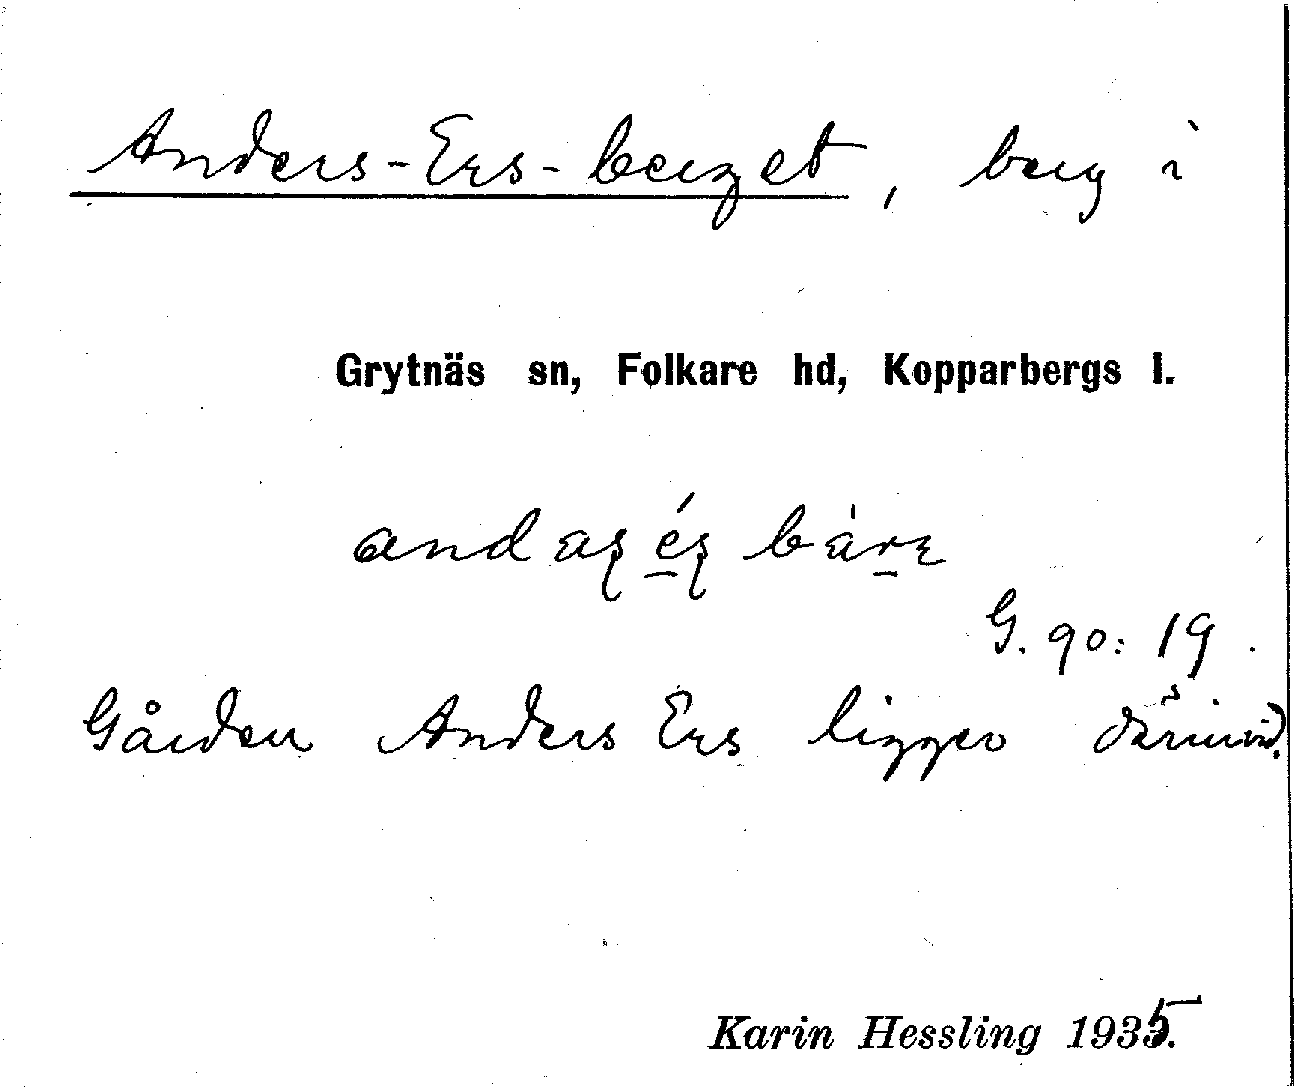 Anders-Ers-berget, berg i
Grytnäs sn, Folkare hd, Kopparbergs l.
G. 90: 19.
Gården Anders Ers ligger därinvid.
Karin Hessling 1935.